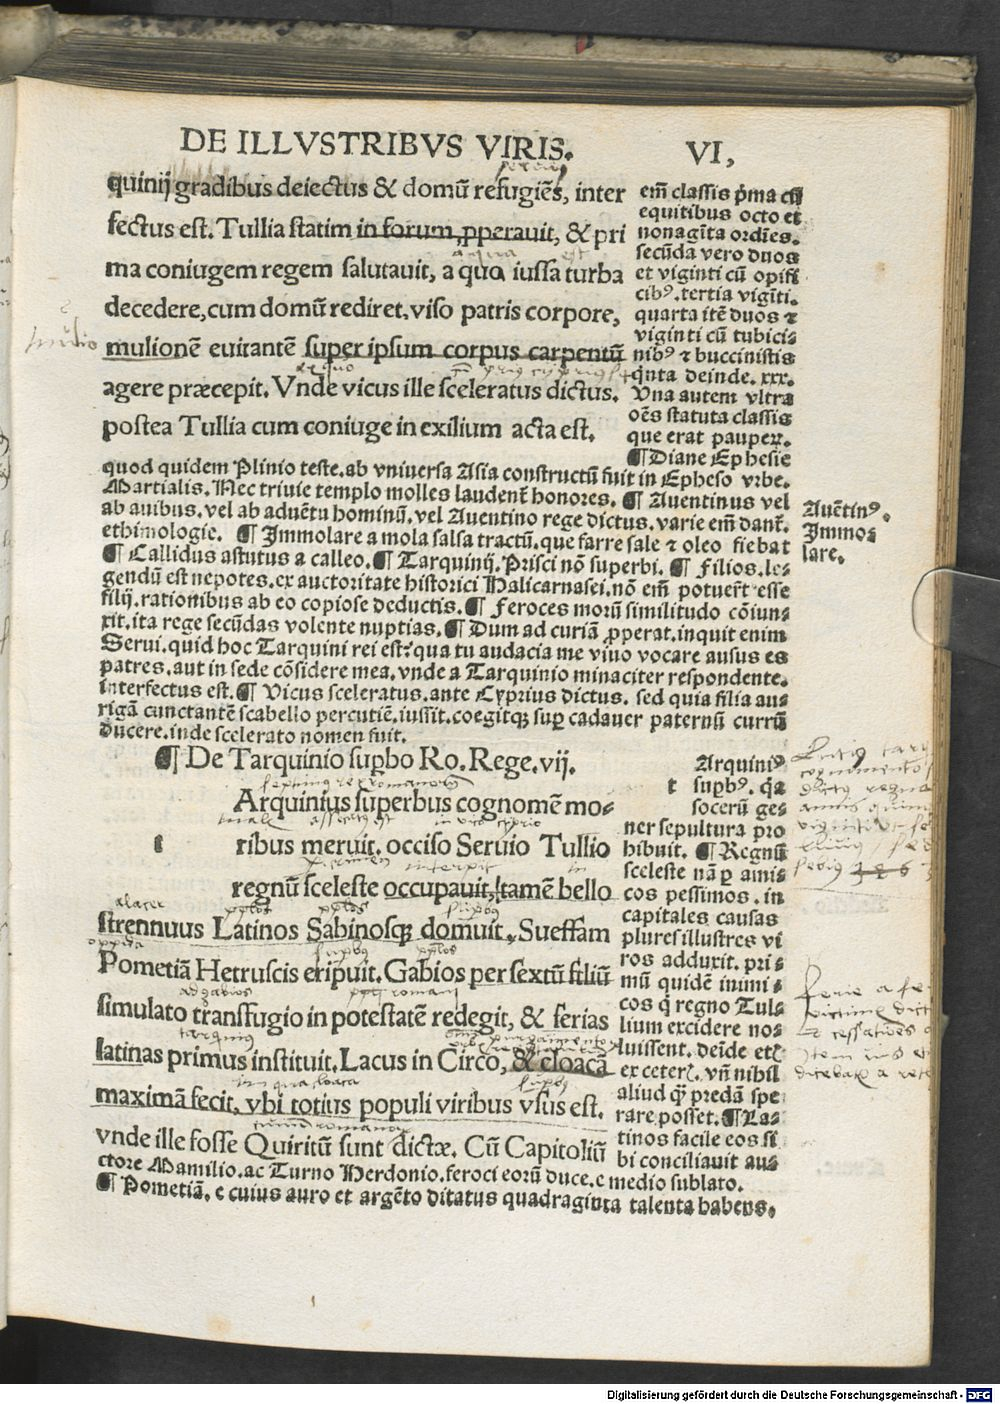 DE ILLVSTRIBVS VIRIS. VI,
quinij gradibus deiectus & domū refugiēs, inter
fectus est. Tullia statim in forum ꝓperauit, & pri
ma coniugem regem salutauit, a quo iussa turba
decedere, cum domū rediret. viso patris corpore,
mulionē euitantē super ipsum corpus carpentū
agere præcepit. Vnde vicus ille sceleratus dictus.
postea Tullia cum coniuge in exilium acta est.
em̄ classis p̄ma cū
equitibus octo et
nonagīta ordīes.
secūda vero duos
et viginti cū opifi
cibꝰ. tertia vigīti.
quarta itē duos ⁊
viginti cū tubici-
nibꝰ ⁊ buccinistis
qn̄ta deinde. xxx.
Vna autem vltra
oēs statuta classis
que erat pauperꝝ.
¶ Diane Ephesie
quod quidem Plinio teste. ab vniuersa Asia constructū fuit in Epheso vrbe.
Martialis. Nec triuie templo molles laudent̄ honores. ¶ Auentinus vel
ab auibus. vel ab aduētu hominū. vel Auentino rege dictus. varie em̄ dant̄.
ethimologie. ¶ Immolare a mola salsa tractū. que farre sale ⁊ oleo fiebat
¶ Callidus astutus a calleo. ¶ Tarquinij. Prisci nō superbi. ¶ Filios. le-
gendū est nepotes. ex auctoritate historici Halicarnasei. nō em̄ potuerūt esse
filij. rationibus ab eo copiose deductis. ¶ Feroces morū similitudo cōiun-
xit. ita rege secūdas volente nuptias. ¶ Dum ad curiā ꝓperat. inquit enim
Serui. quid hoc Tarquini rei est? qua tu audacia me viuo vocare ausus es
patres. aut in sede cōsidere mea. vnde a Tarquinio minaciter respondente.
interfectus est. ¶ Vicus sceleratus. ante Cyprius dictus. sed quia filia au-
rigā cunctantē scabello percutiē. iussit. coegitqꝫ suꝑ cadauer paternū currū
ducere. inde scelerato nomen fuit.
Auētinꝰ.
Immo-
lare.
¶ De Tarquinio supbo Ro. Rege. vij.
t Arquinius superbus cognomē mo-
ribus meruit. occiso Seruio Tullio
regnū sceleste occupauit, tamē bello
strennuus Latinos Sabinosqꝫ domuit. Sueffam
Pometiā Hetruscis eripuit. Gabios per sextū filiū
simulato transfugio in potestatē redegit, & ferias
latinas primus instituit. Lacus in Circo, & cloacā
maximā fecit, vbi totius populi viribus vsus est.
vnde ille fosse Quiritū sunt dictæ. Cū Capitoliū
t Arquiniꝰ
suꝑbꝰ. qa
socerū ge-
ner sepultura pro
hibuit. ¶ Regnū
sceleste nāꝑ amis
cos pessimos. in
capitales causas
plures illustres vi
ros adduxit. pri-
mū quidē inimi-
cos q̄ regno Tul-
lium excidere no-
luissent. deīde etꝭ
ex ceterꝭ. vn̄ nihil
aliud qꝫ predā spe
rare posset. ¶ La-
tinos facile eos si
bi conciliauit au-
ctore Mamilio. ac Turno Herdonio. feroci eorū duce. e medio sublato.
¶ Pometiā. e cuius auro et argēto ditatus quadraginta talenta habens.
septimus rex romanorū
ad gabios
Digitalisierung gefördert durch die Deutsche Forschungsgemeinschaft - DFG